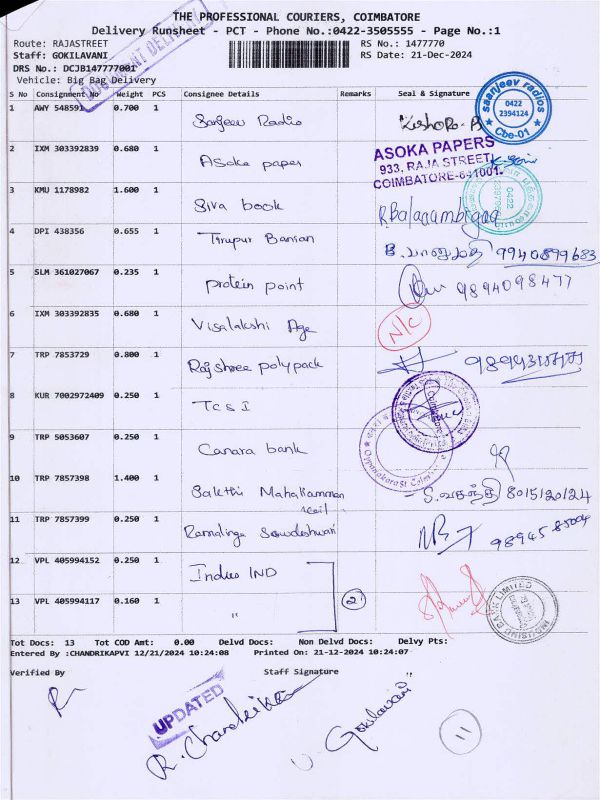 THE PROFESSIONAL COURIERS, COIMBATORE
Delivery Runsheet - PCT - Phone No.:0422-3505555 - Page No.:1
Route: RAJASTREET RS No.: 1477770
Staff: GOKILAVANI RS Date: 21-Dec-2024
DRS No.: DCJB147777001
Vehicle: Big Bag Delivery
DOCUMENT DELIVERY
S No Consignment No Weight PCS Consignee Details Remarks Seal & Signature
1 AWY 548591 0.700 1 Sanjeev Radio Kishore.R
saanjeev radios 0422 2394124 Cbe-01
2 IXM 303392839 0.680 1 ASoka paper
ASOKA PAPERS
933, RAJA STREET,
COIMBATORE-641001.
3 KMU 1178982 1.600 1 Siva book R.Balaaambigaa
0422
4 DPI 438356 0.655 1 Tirupur Banian B. பானுமதி 9940899683
5 SLM 361027067 0.235 1 protein point 9894098477
6 IXM 303392835 0.680 1 Visalakshi Age N/C
7 TRP 7853729 0.800 1 Rajshree polypack
8 KUR 7002972409 0.250 1 TCSI
9 TRP 5053607 0.250 1 Canara bank
Oppanakara St
10 TRP 7857398 1.400 1 Sakthi Mahaliamman S. வசந்தி 8015120124
11 TRP 7857399 0.250 1 Ramalinga Sowdeshwari 98945 85004
12 VPL 405994152 0.250 1 Indus IND
13 VPL 405994117 0.160 1 " 2
INDUSIND BANK LIMITED
Tot Docs: 13 Tot COD Amt: 0.00 Delvd Docs: Non Delvd Docs: Delvy Pts:
Entered By :CHANDRIKAPVI 12/21/2024 10:24:08 Printed On: 21-12-2024 10:24:07
Verified By Staff Signature
UPDATED
R. Chandrika
Gokilavani
11